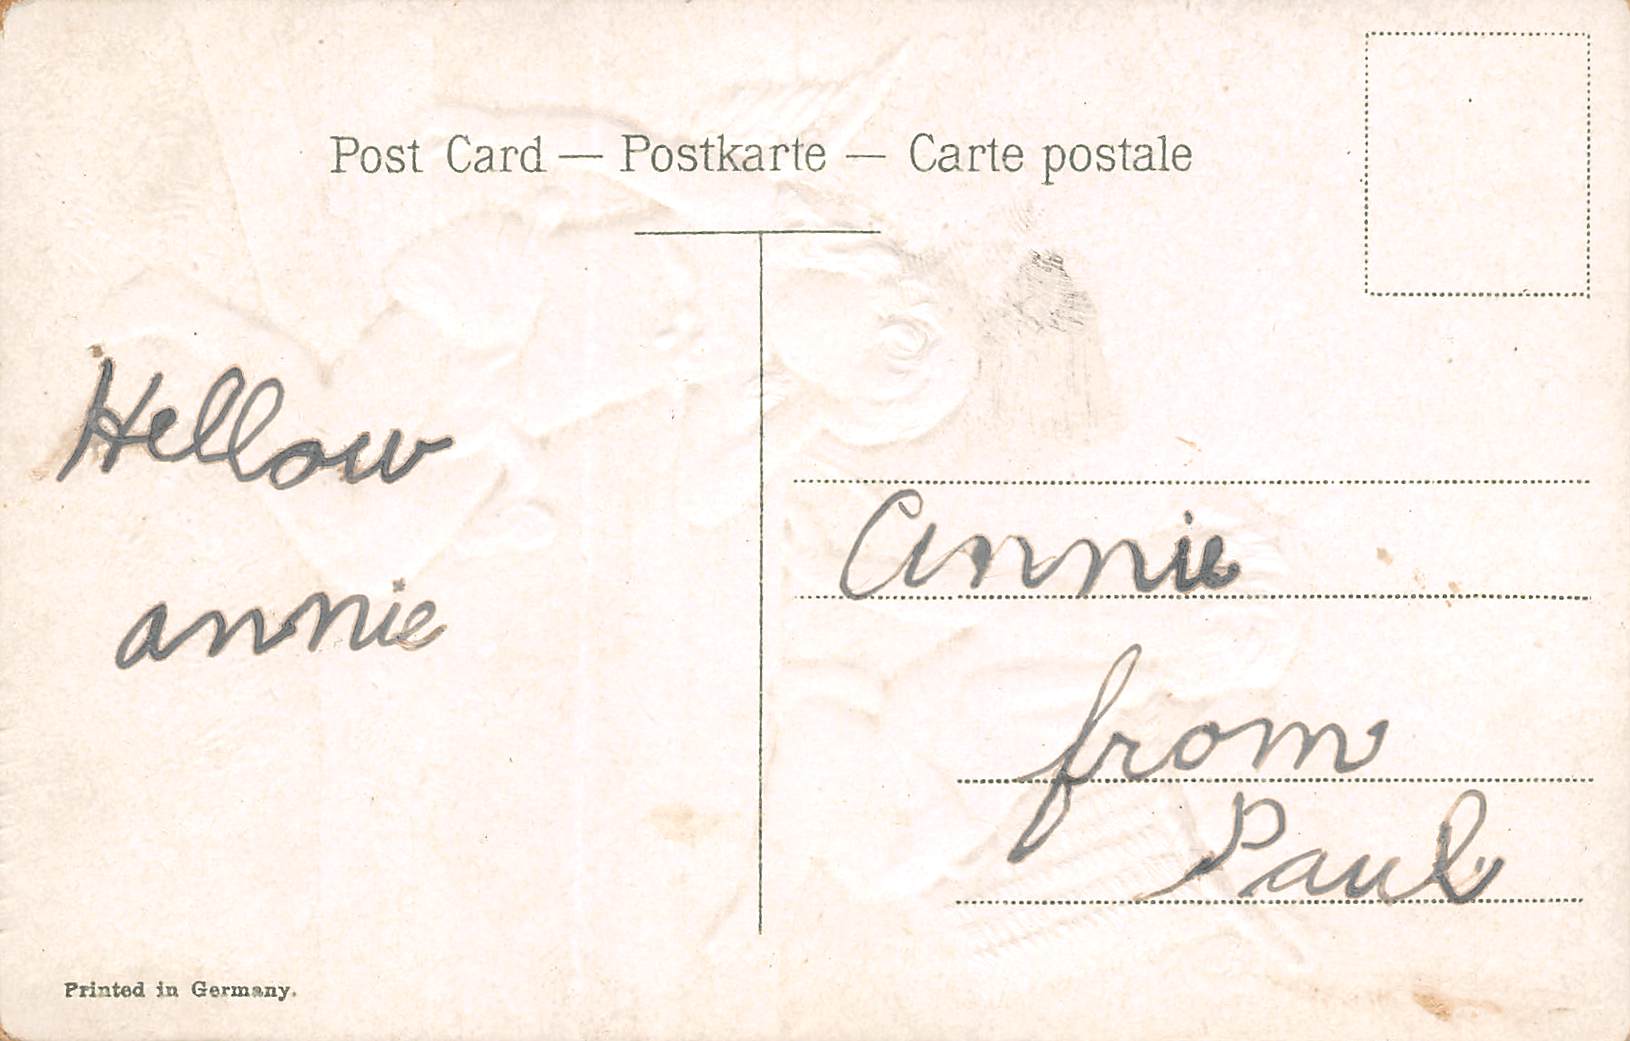 Post Card — Postkarte — Carte postale
Hellow
annie
Annie
from
Paul
Printed in Germany.